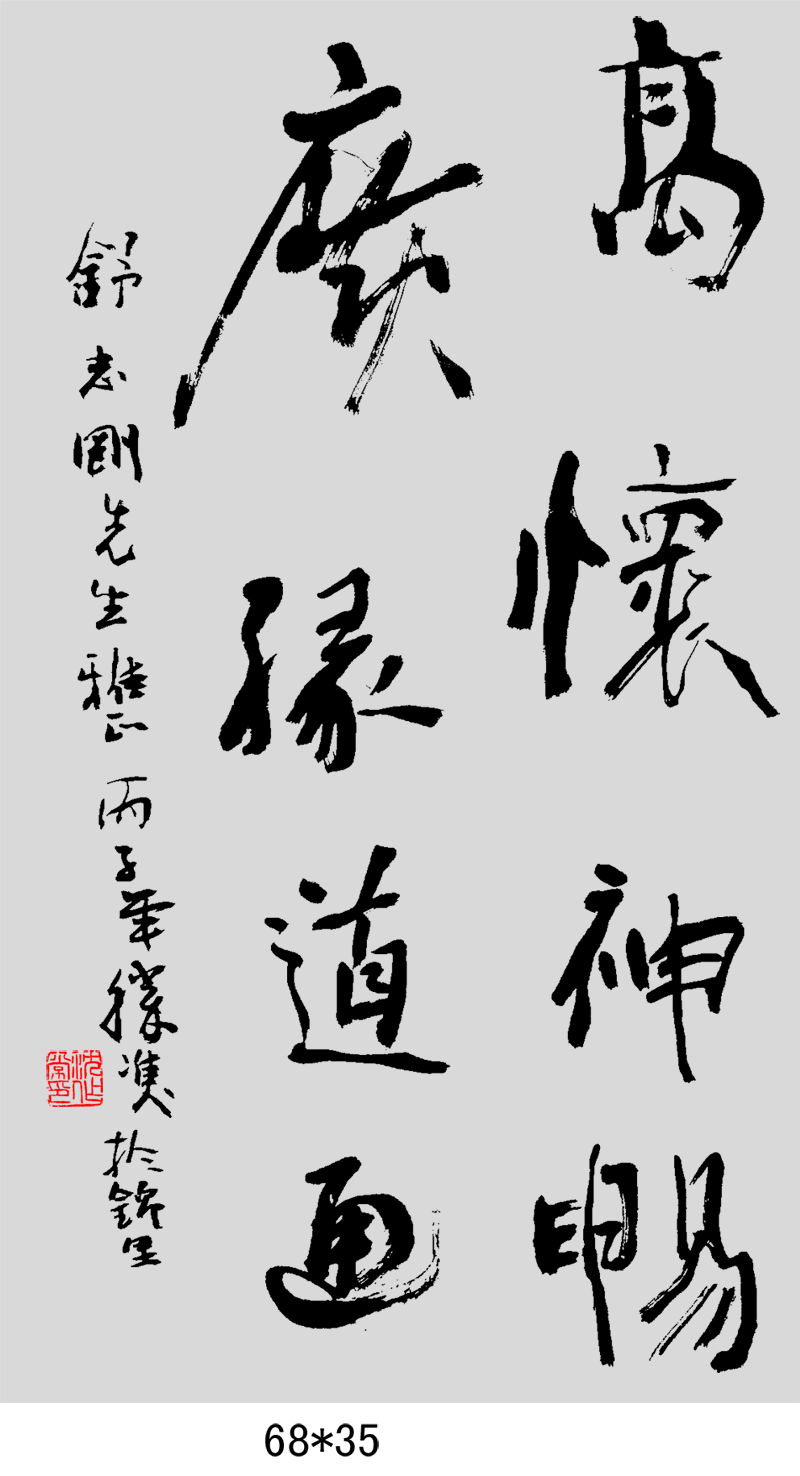 高懷神暢
廣緣道通
舒志剛先生雅正 丙子年 於錦里
68*35